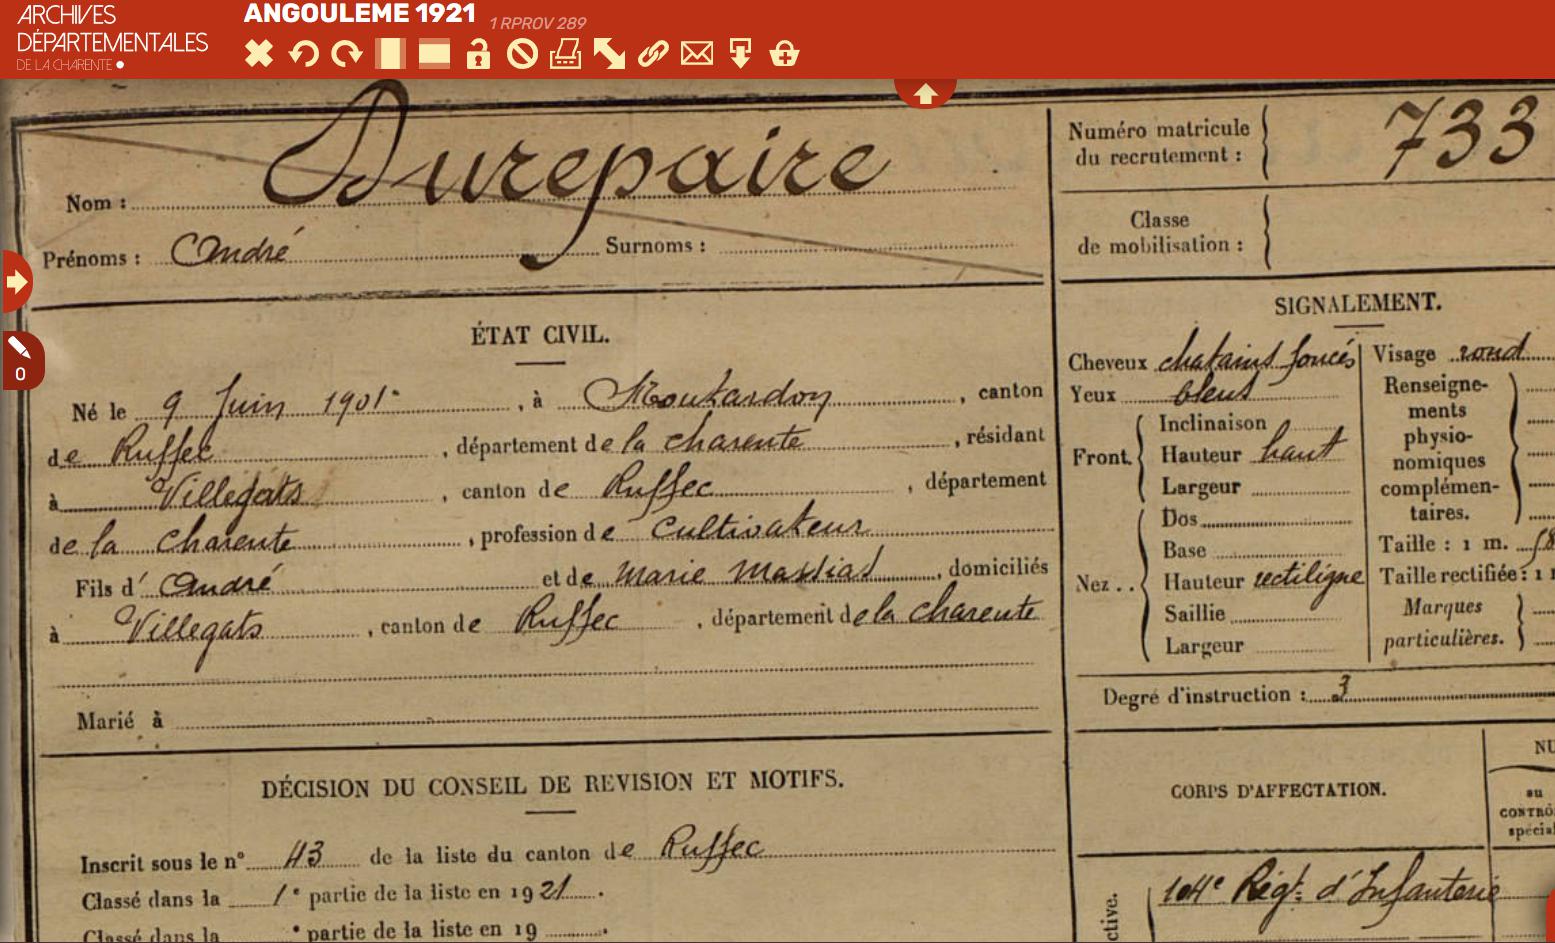 ARCHIVES
DÉPARTEMENTALES
DE LA CHARENTE
ANGOULEME 1921 1 RPROV 289
0
Nom : Durepaire
Prénoms : André Surnoms :
Numéro matricule
du recrutement : 733
Classe
de mobilisation :
ÉTAT CIVIL.
Né le 9 Juin 1901 , à Moutardon , canton
de Ruffec , département de la charente , résidant
à Villegats , canton de Ruffec , département
de la charente , profession de cultivateur
Fils d' André et de marie massias , domiciliés
à Villegats , canton de Ruffec , département de la charente
Marié à
SIGNALEMENT.
Cheveux chatains foncés
Yeux bleus
Front.
Inclinaison
Hauteur haut
Largeur
Nez ..
Dos
Base
Hauteur rectiligne
Saillie
Largeur
Visage rond
Renseigne-
ments
physio-
nomiques
complémen-
taires.
Taille : 1 m.
Taille rectifiée : 1
Marques
particulières.
Degré d'instruction : 3
DÉCISION DU CONSEIL DE REVISION ET MOTIFS.
Inscrit sous le n° 43 de la liste du canton de Ruffec
Classé dans la 1e partie de la liste en 1921.
Classé dans la e partie de la liste en 19 .
CORPS D'AFFECTATION.
NU
au
CONTRÔ
spécial
ctive.
104e Régt. d'Infanterie